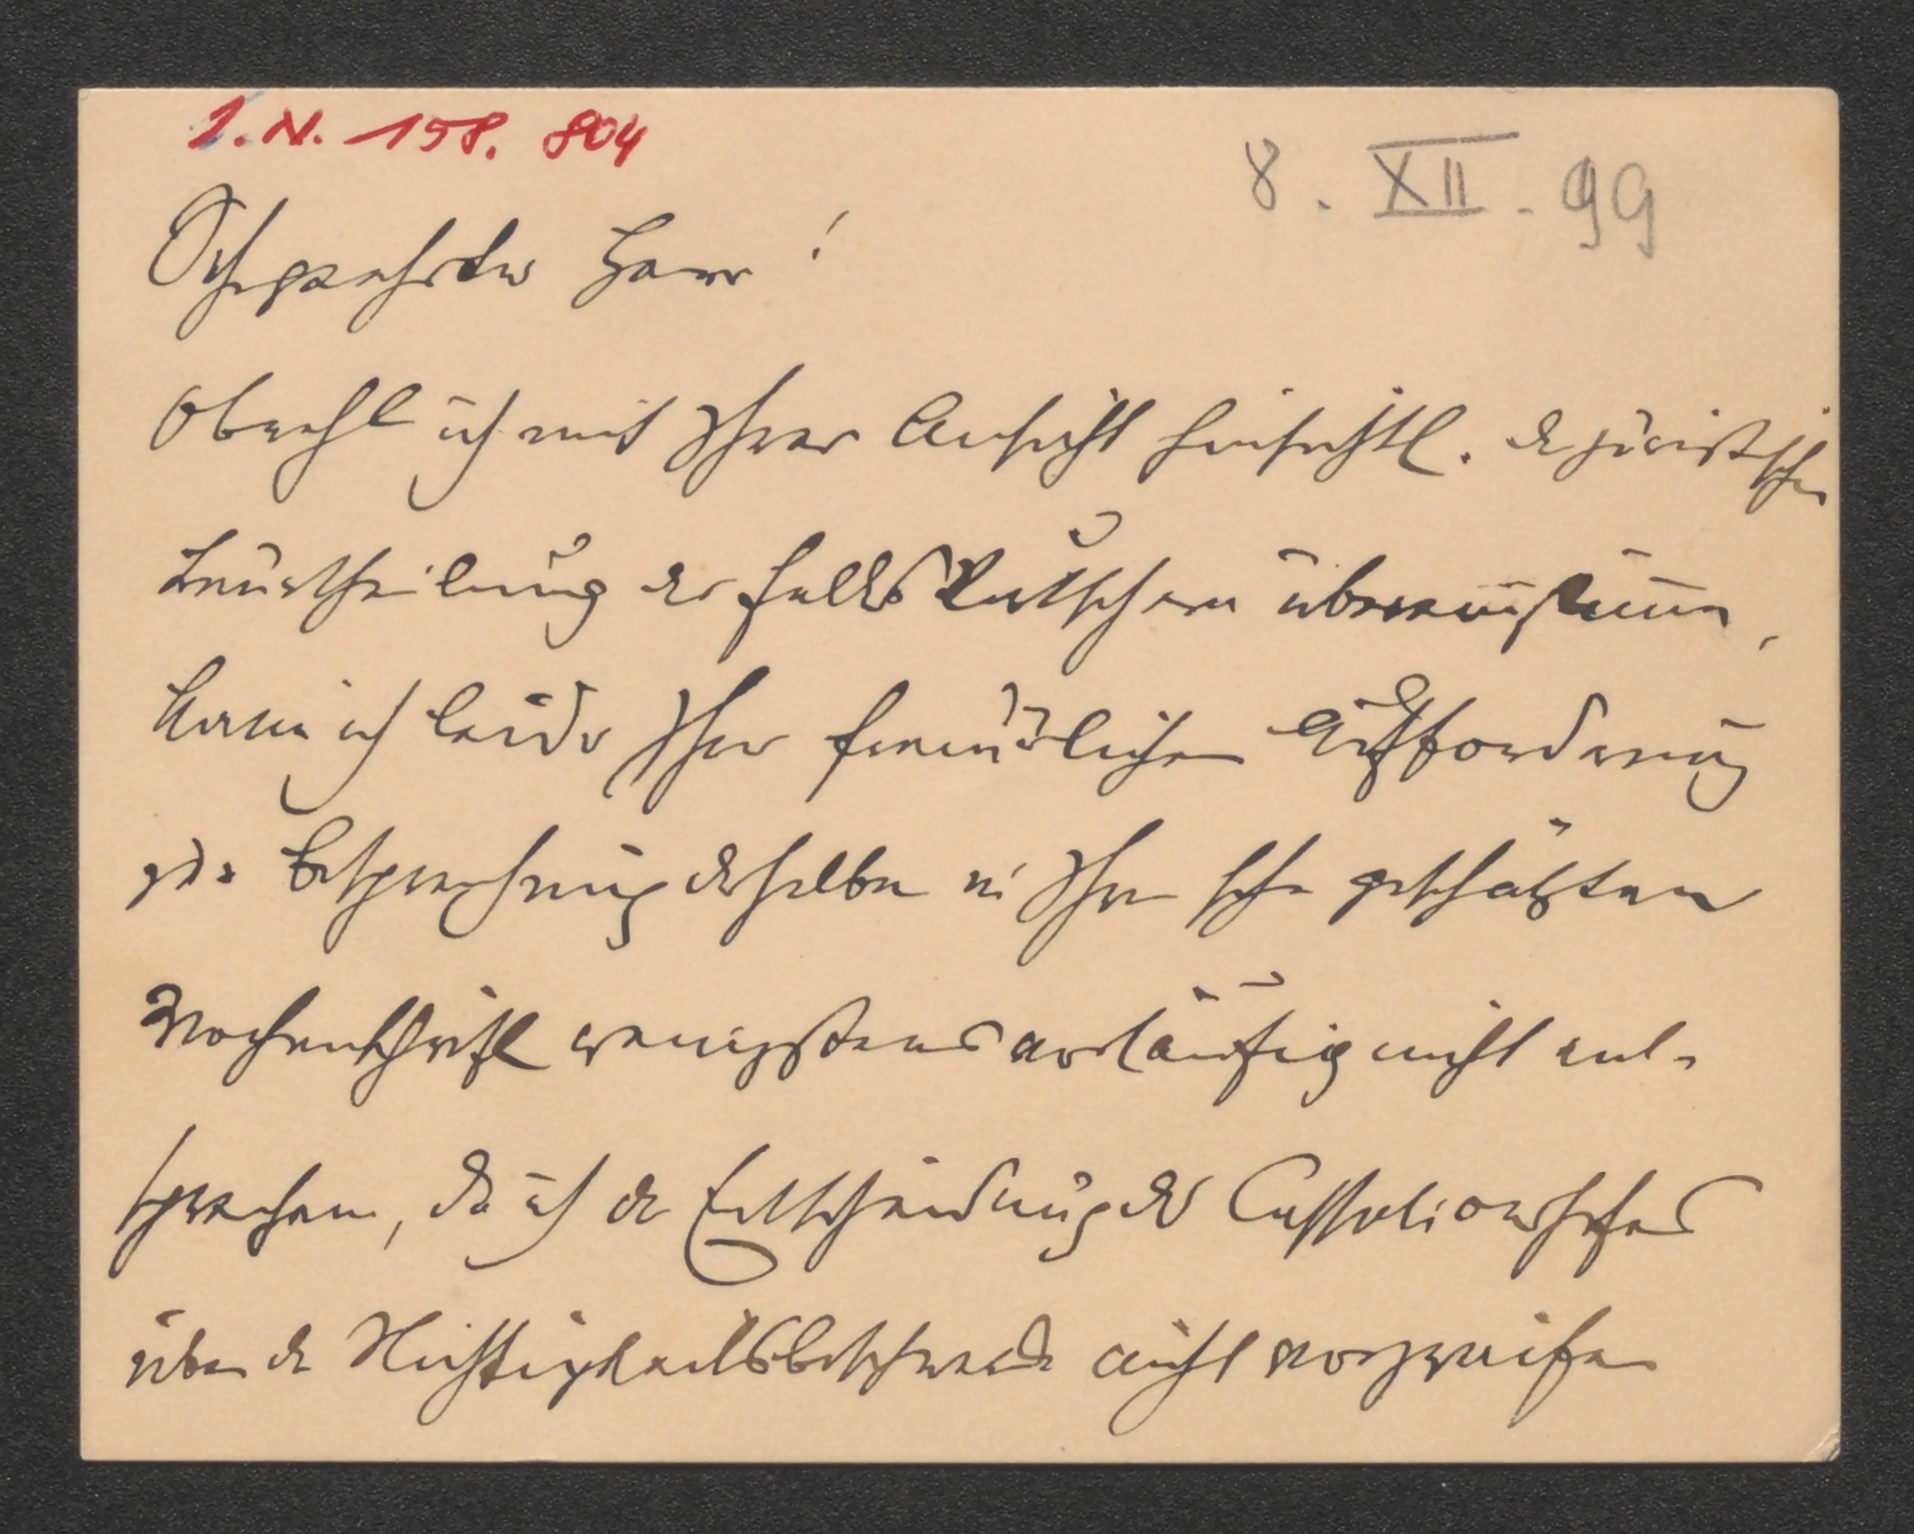 I.N. 158.804
8. XII. 99
Sehr geehrter Herr!
Obwohl ich mit Ihrer Ansicht hinsichtl. der juristischen
Beurtheilung des Falles übereinstimme,
kann ich leider Ihrer freundlichen Aufforderung
zur Besprechung desselben in Ihrer sehr geschätzten
Wochenschrift wenigstens vorläufig nicht ent-
sprechen, da ich der Entscheidung des Cassationshofes
über die Nichtigkeitsbeschwerde nicht vorgreifen